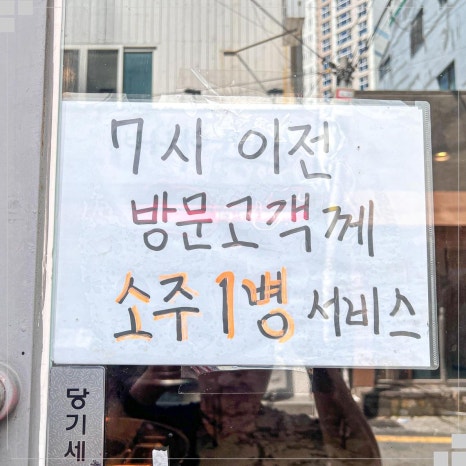 7시 이전
방문고객께
소주 1병 서비스
당기세